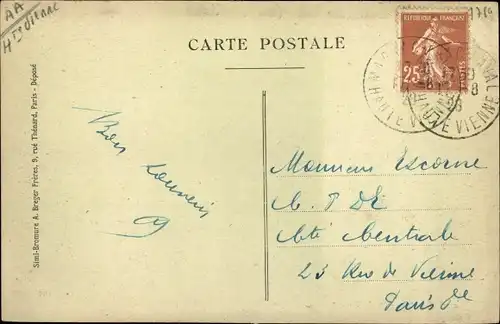 AA
Hte Vienne
CARTE POSTALE
REPUBLIQUE FRANÇAISE
25
HAUTE VIENNE
Simi-Bromure A. Breger Frères, 9, rue Thénard, Paris - Déposé
Bon souvenir
Monsieur Escorne
C. P. D E
Cité Centrale
23 Rue de Vienne
Paris 8e